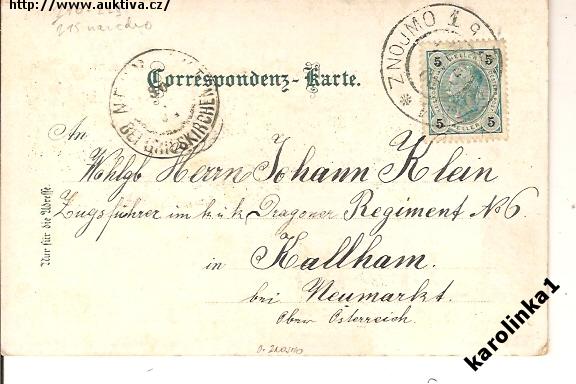 http://www.auktiva.cz/
Correspondenz-Karte.
ZNOJMO 1
5 5
HELLER
5 5
BEI GRIESKIRCHEN
An
Wohlgb Herrn Johann Klein
Zugsführer im k u k Dragoner Regiment No 6.
in Kallham.
bei Neumarkt.
Ober Österreich.
Nur für die Adresse.
O. ZNOJMO
karolinka1